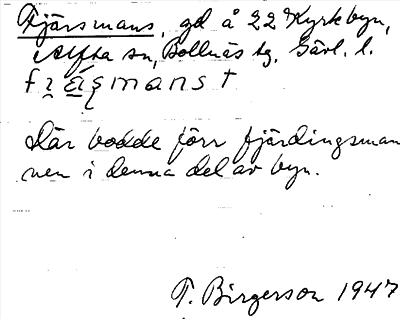 Fjärsmans, gd å 22 Kyrkbyn,
Alfta sn, Bollnäs tg, Gävl. l.
smanst
Där bodde förr fjärdingsman
nen i denna del av byn.
T. Birgerson 1947